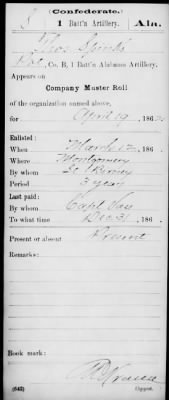 (Confederate.)
S | 1 Batt'n Artillery. | Ala.
Thos Spinks
Co. B, 1 Batt'n Alabama Artillery.
Appears on
Company Muster Roll
of the organization named above,
for April 19, 186
Enlisted:
When March 12, 186 .
Where Montgomery
By whom Lt.
Period 3 years
Last paid:
By whom Capt.
To what time Dec 31, 186 .
Present or absent Present
Remarks:
Book mark:
(642) Copyist.